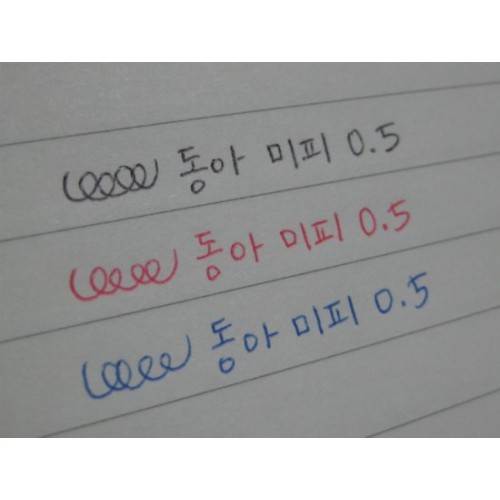 동아 미피 0.5
동아 미피 0.5
동아 미피 0.5